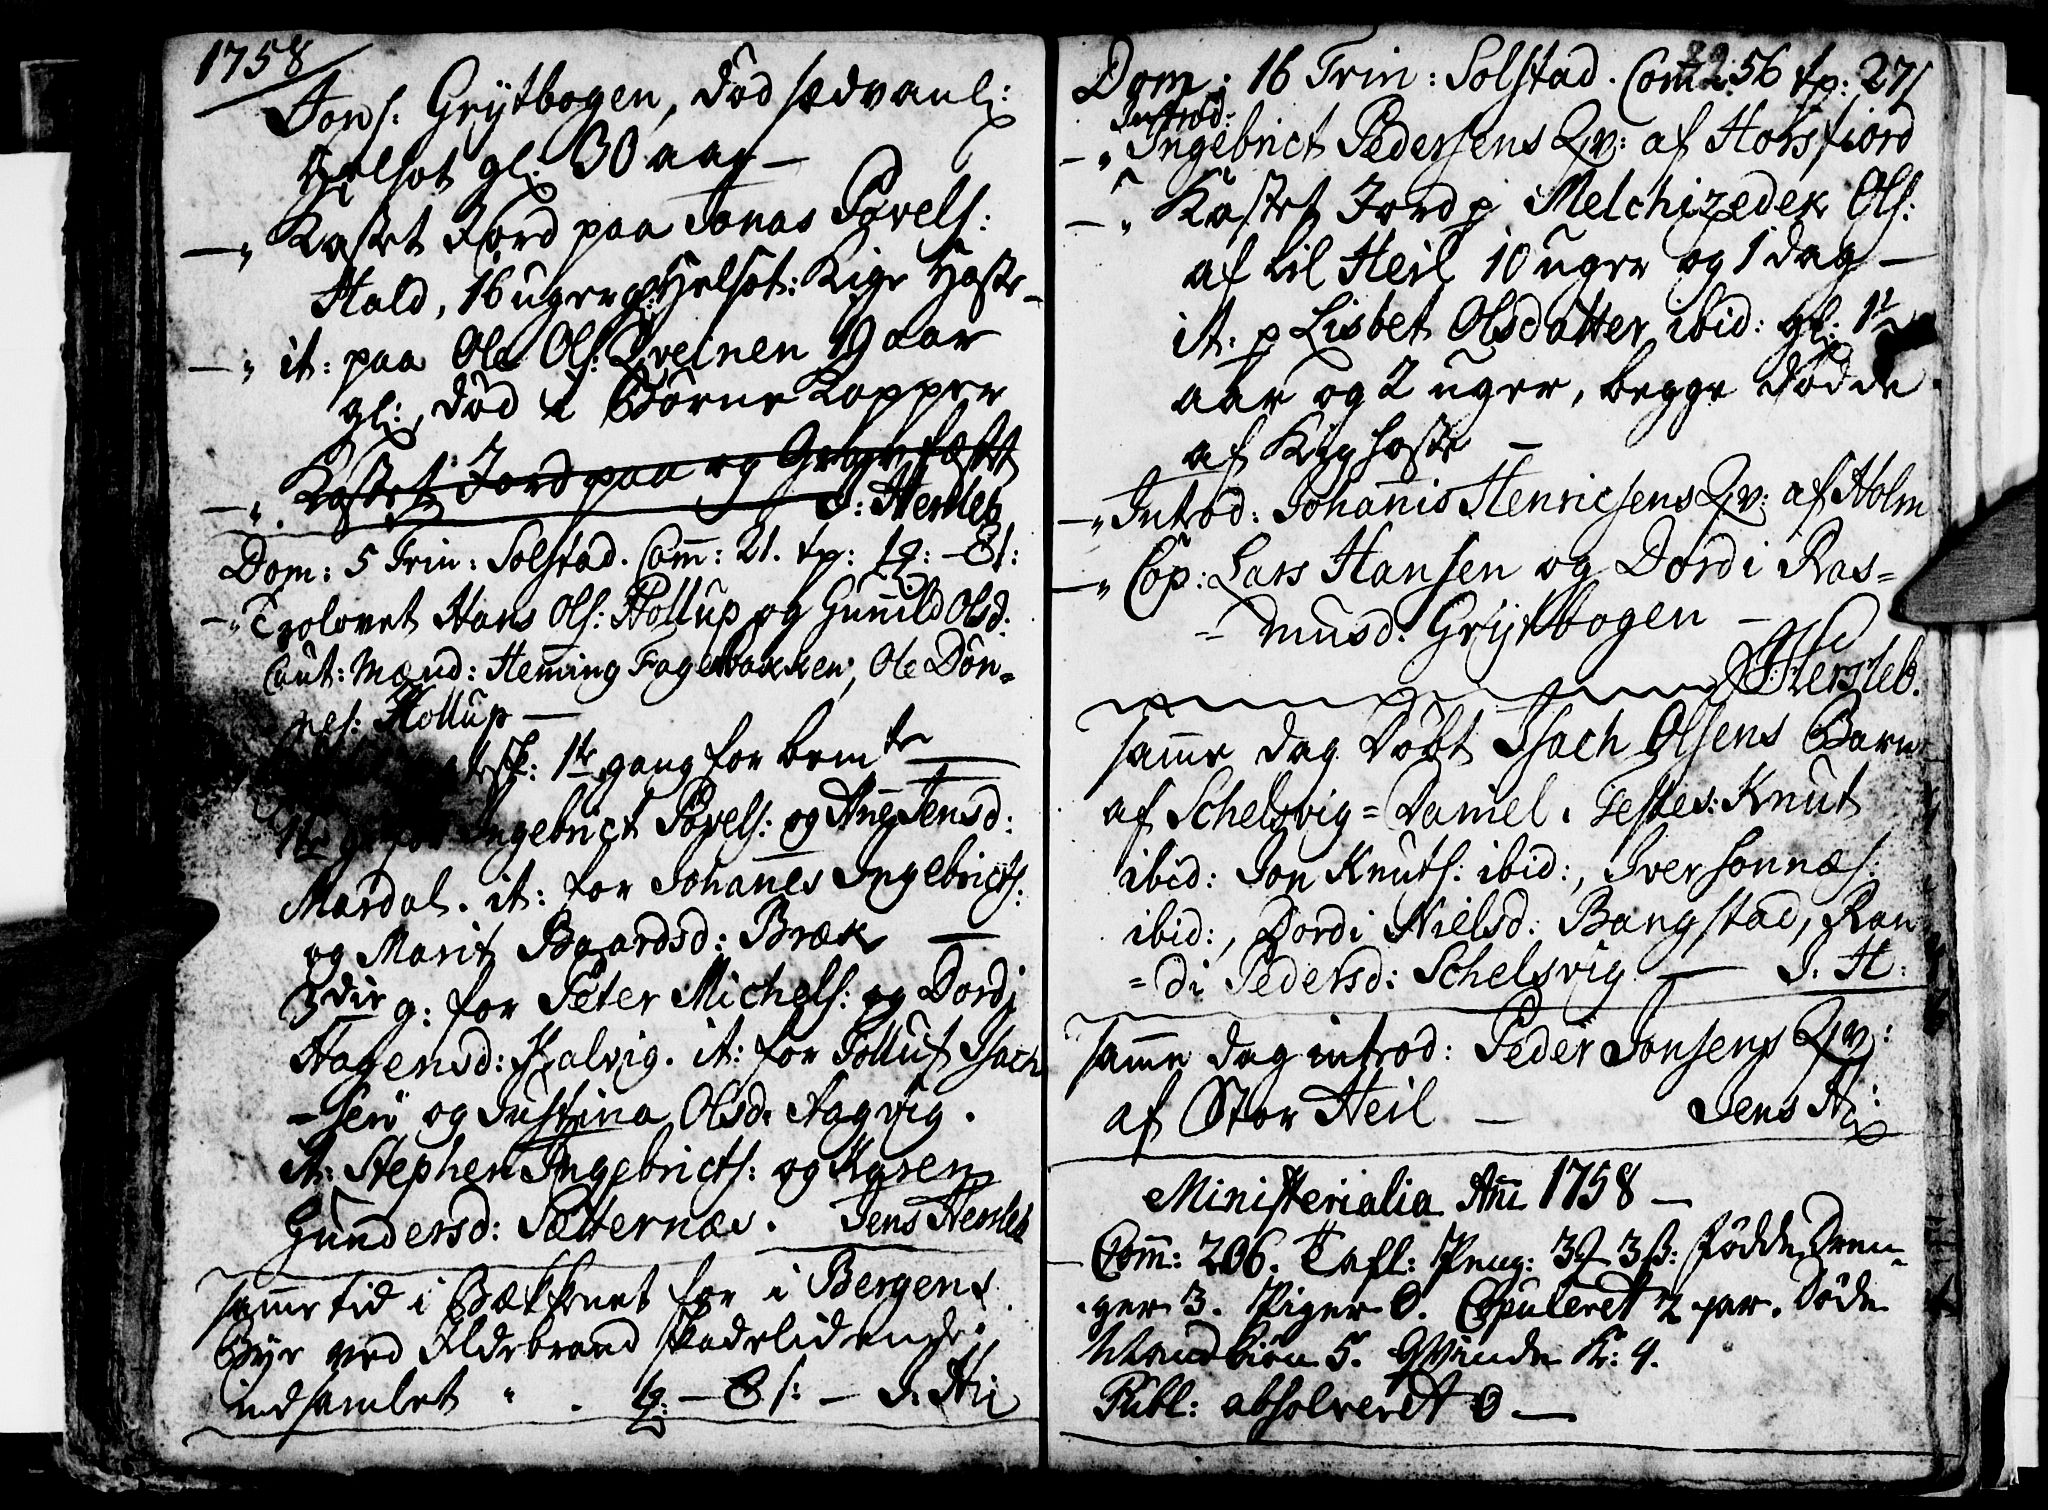 1758
Jons: Grytbogen, död sædvanl:
Helsot gl: 30 aar —
—„ Kastet Jord paa Jonas Povels:
Hald, 16 uger gl: Helsot: Kige Hoste —
—„ it: paa Ole Ols: Qveinen 19 aar
gl:, död i Börne Kopper
—„ Kastet Jord paa og Grave fæstet
J: Hersleb
Dom: 5 Trin: Solstad. Com̄: 21. tp: 1q: — 8s:
—„ Trolovet Hans Ols: Hollup og Gunild Olsd:
Caut: Mænd: Hem̄ing Fagerbakken, Ole Dön=
nes: Hollup —
1te gang for bemte —
1te g: for Ingebrict Povels: og Ane Jensd:
Mardal. it: for Johan̄es Ingebricts:
og Marit Baardsd: Bræk —
3die g: for Peter Michels: og Dordi
Hagensd: Kalvig. it: for Tolluf Isach
=sen og Justina Olsd: Aagvig.
it: Stephen Ingebricts: og Karen
Gundersd: Sætternæs. Jens Hersleb
samme tid i Bækkenet for i Bergens
Bye ved Ildebrand skadelidende
indsamlet „ . 4q: — 8s: — J. H:
Dom: 16 Trin: Solstad. Com̄ 56 tp: 27s
Introd:
—„ Ingebrict Pedersens Qv: af Horsfiord
—„ Kastet Jord p Melchizedek Ols:
af Lil Heil 10 uger og 1 dag —
it: p Lisbet Olsdatter ibid: gl: 1t
aar og 2 uger, begge Dödde
af Kighoste —
—„ Introd: Johan̄is Henricsens Qv: af Holm
—„ Cop: Lars Hansen og Dordi Ras=
= musd: Grytbogen —
J: Hersleb.
samme dag Döbt Isach Olsens Barn
af Schelsvig = Daniel. Testes: Knut
ibid: Jon Knuts: ibid:, Iver Sonnæs:
ibid:, Dordi Nielsd: Bangstad, Ran
=di Pedersd: Schelsvig — J. H:
samme dag introd: Peder Jonsens Qv:
af Stor Heil — Jens H:
Ministerialia An̄i 1758 —
Com̄: 206. Tafl: Peng: 3q 3ß: Födde Dren=
ger 3. Piger 0. Copuleret 2 par. Döde
Mandkiön 5. Qvinde K: 4.
Publ: absolveret 0 —